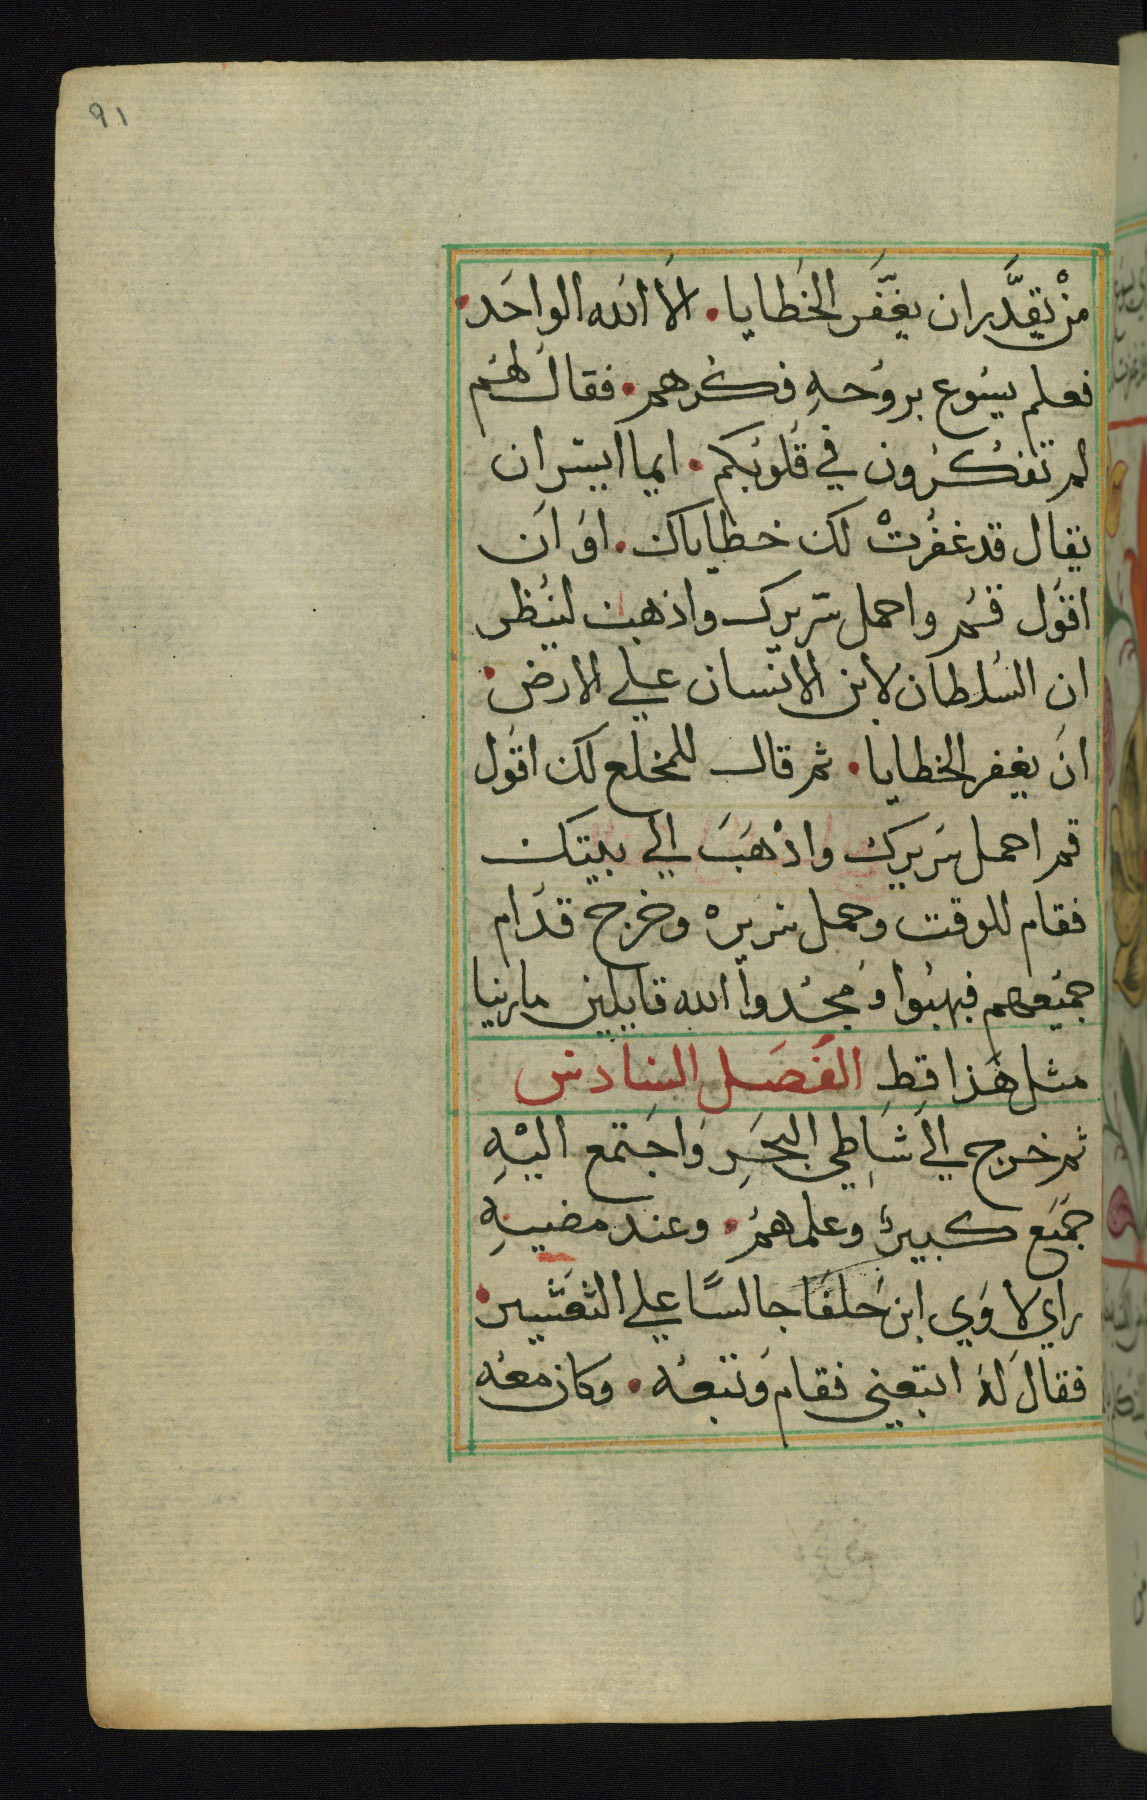 ٩١
مَنْ يَقدَّر ان يغَفّر الخَطايا. الاَ اللَه الواحَد.
فعلم يسُوع بروُحهِ فكُرهم. فقال لهُم
لم تفكُرون في قلوُبكم. ايما ايسّر ان
يقال قد غفُرتْ لك خطاياك. اوَ اَن
اقوُل قُم واحمل سّريرك واذهبَ لينُظر
ان السُلطان لابن الانّسان علي الارض.
انَ يغفر الخطايا. ثم قال للمخلّع لك اقوُل
قم احمل سَريرك واذْهَبَ الي بيتك
فقام للوقت وحمل سريره وخرج قدام
جميُعهم فبهتُوا ومجُدوا الله قايلين ما رينيا
مثل هَذا قطِ الفَصَل السادس
ثم خرج الَي شَاطِي البحَرِ وَاجَتمع اليْهِ
جمَيع كبيرٌ وعلمهمُ. وعند مضيهِ
راي لاوَي ابن حَلفَا جالسًا علي التعَشير.
فقال لَهُ اتبعيني فقام وَتبعُه. وكان معُه